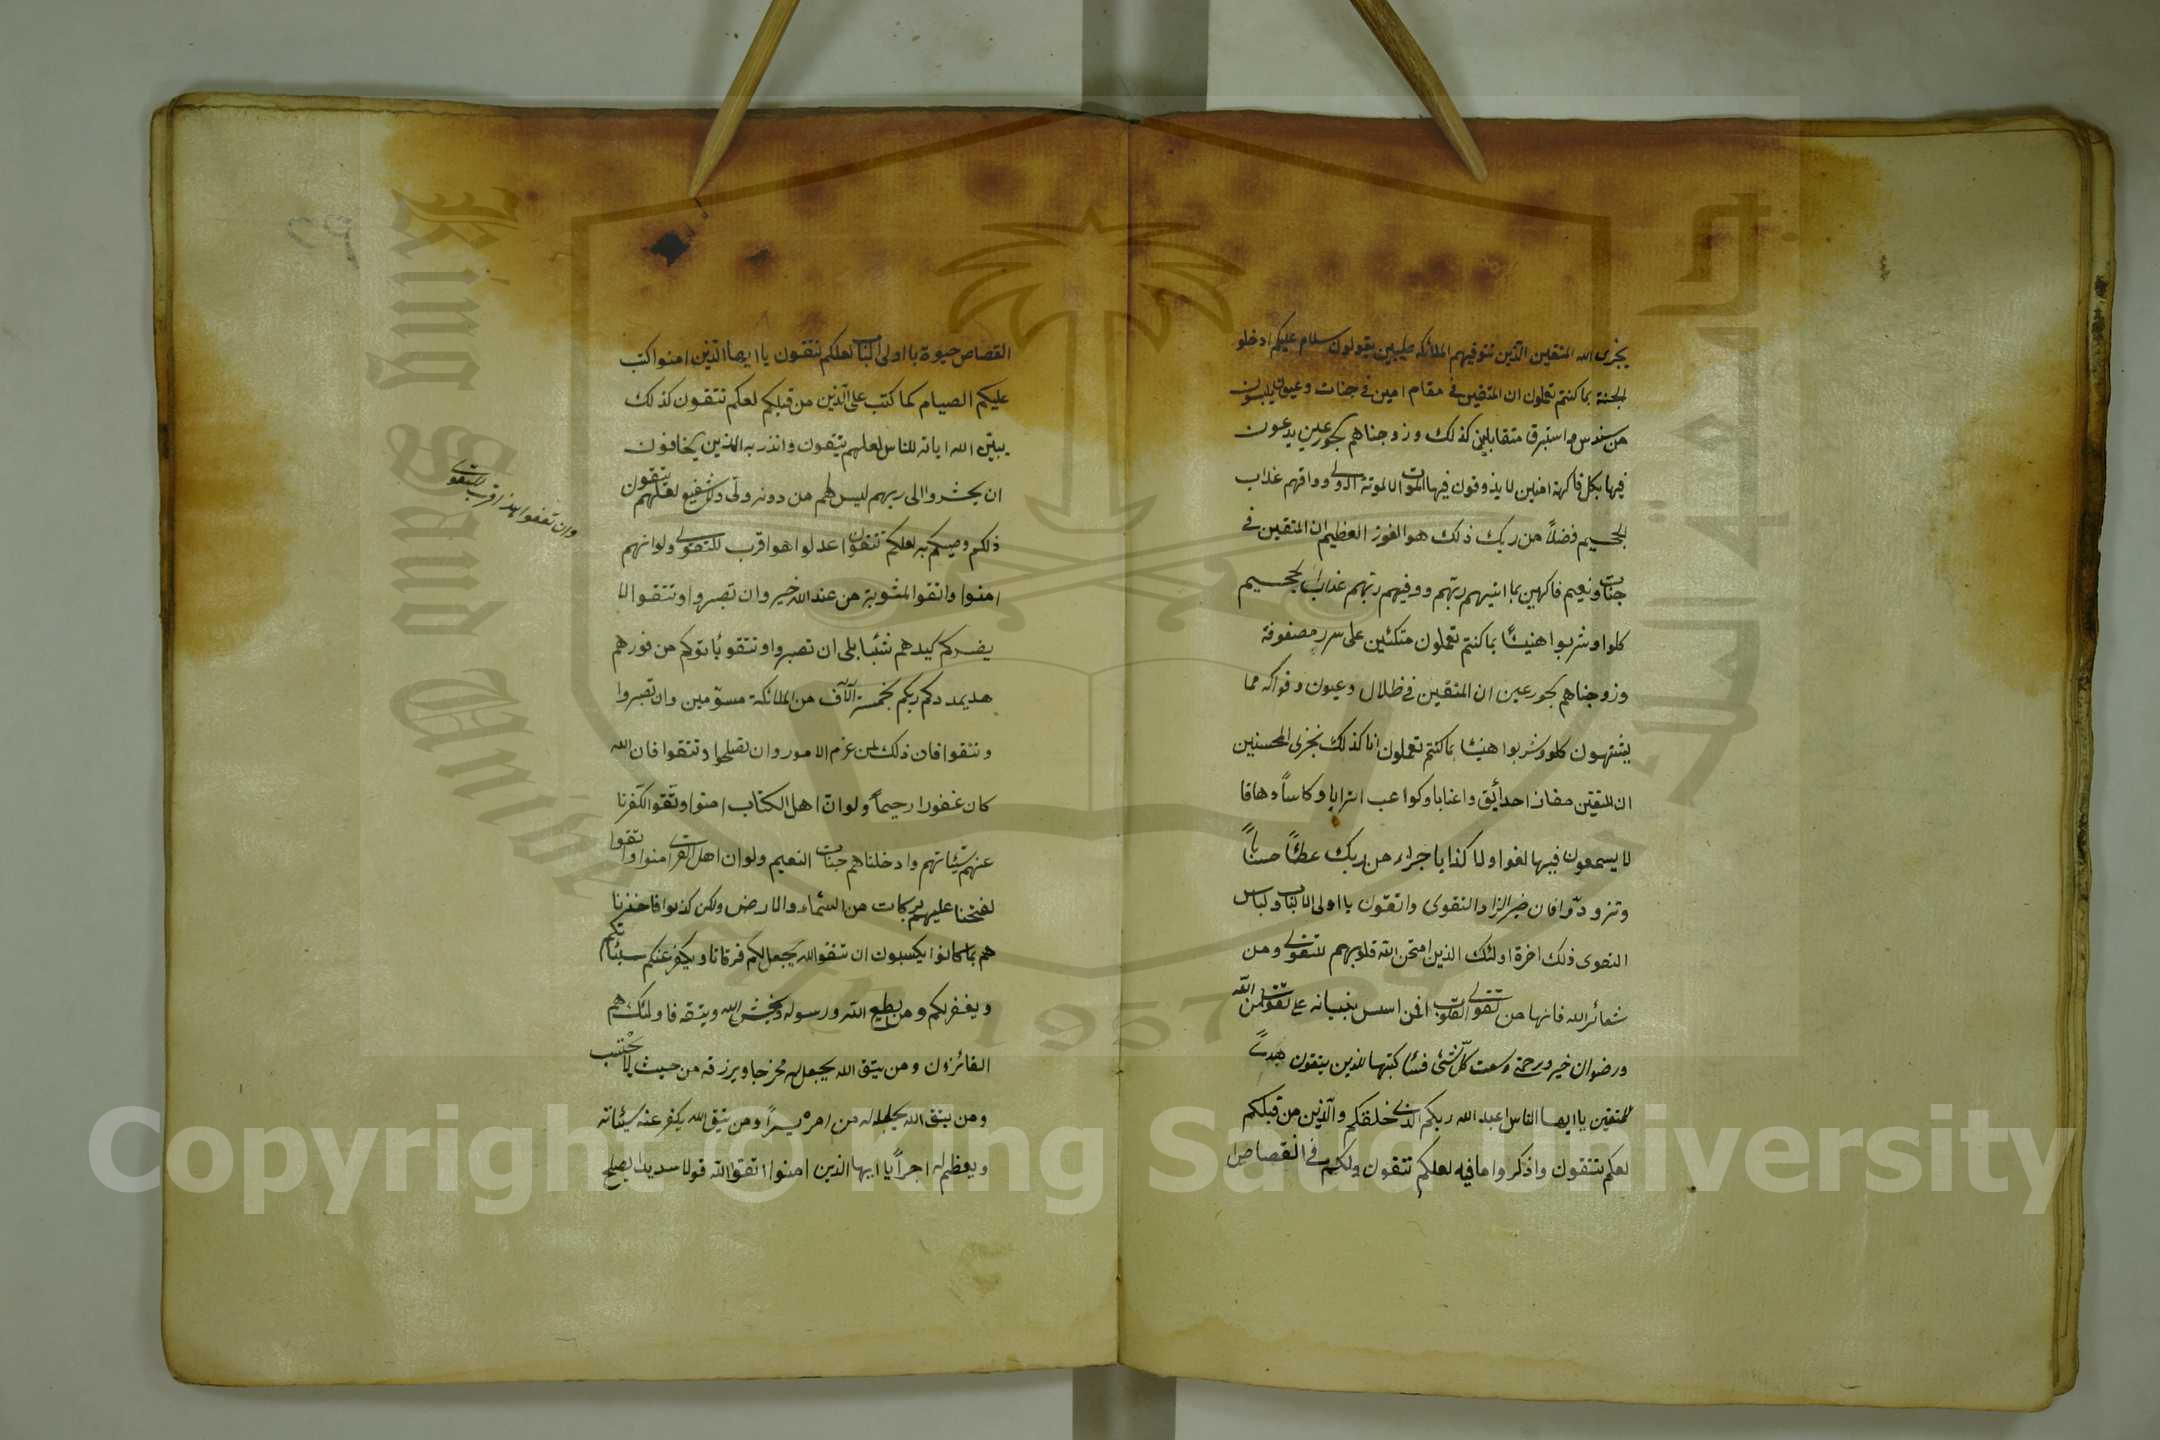 يجزى الله المتقين الذين تتوفيهم الملائكة طيبين يقولون سلام عليكم ادخلوا
الجنة بما كنتم تعملون ان المتقين فى مقام امين فى جنات وعيون يلبسون
من سندس واستبرق متقابلين كذلك وزوجناهم بحور عين يدعون
فيها بكل فاكهة امنين لا يذوقون فيها الموت الا الموتة الاولى ووقهم عذاب
الجحيم فضلاً من ربك ذلك هو الفوز العظيم ان المتقين فى
جنات ونعيم فاكهين بما اتيهم ربهم ووقيهم ربهم عذاب الجحيم
كلوا وشربوا هنيئًا بما كنتم تعملون متكئين على سرر مصفوفة
وزوجناهم بحور عين ان المتقين فى ظلال وعيون وفواكه مما
يشتهون كلوا وشربوا هنيئا بما كنتم تعملون انا كذلك نجزى المحسنين
ان للمتقين مفازا حدائق واعنابا وكواعب اترابا وكاساً دهاقا
لا يسمعون فيها لغوا ولا كذابا جزاء من ربك عطاءً حساباً
وتزودوا فان خير الزاد التقوى واتقون يا اولى الالباب ولباس
التقوى ذلك اخرة اولئك الذين امتحن الله قلوبهم للتقوى ومن
شعائر الله فانها من تقوى القلوب افمن اسس بنيانه على تقوى من الله
ورضوان خير ورحمتى وسعت كل شئ فسأكتبها للذين يتقون هدىً
للمتقين يا ايها الناس اعبد الله ربكم الذى خلقكم والذين من قبلكم
لعلكم تتقون واذكروا ما فيه لعلكم تتقون ولكم فى القصاص
القصاص حيوة يا اولى الالباب لعلكم تتقون يا ايها الذين امنوا كتب
عليكم الصيام كما كتب على الذين من قبلكم لعلكم تتقون كذلك
يبين الله اياته للناس لعلهم يتقون وانذر به الذين يخافون
ان يحشروا الى ربهم ليس لهم من دونه ولى ولا شفيع لعلهم يتقون
ذلكم وصيكم به لعلكم تتقون اعدلوا هو اقرب للتقوى ولو انهم
امنوا واتقوا لمثوبة من عند الله خير وان تصبروا وتتقوا لا
يضركم كيدهم شيئا بلى ان تصبروا وتتقوا يأتوكم من فورهم
هد يمددكم ربكم بخمسة آلآف من الملائكة مسوّمين وان تصبروا
وتتقوا فان ذلك لمن عزم الامور وان تصلحوا وتتقوا فان الله
كان غفورا رحيماً ولو ان اهل الكتاب امنوا وتقوا لكفرنا
عنهم سيّئاتهم وادخلناهم جنات النعيم ولو ان اهل القرى امنوا واتقوا
لفتحنا عليهم بركات من السماء والارض ولكن كذبوا فاخذنا
هم بما كانوا يكسبون ان تتقوا الله يجعل لكم فرقانا ويكفر عنكم سيئاتكم
ويغفر لكم ومن يطع الله ورسوله ويخش الله ويتقه فاولئك هم
الفائزون ومن يتق الله يجعل له مخرجا ويرزقه من حيث لا يحتسب
ومن يتق الله يجعل له من امره يسراً ومن يتق الله يكفر عنه سيئاته
ويعظم له اجراً يا ايها الذين امنوا اتقوا الله قولا سديدا يصلح
وان تعفوا اقرب للتقوى
King Saud University
1957
Copyright © King Saud University